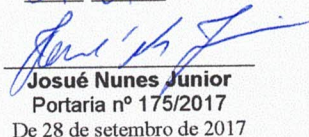 Josué Nunes Junior
Portaria nº 175/2017
De 28 de setembro de 2017